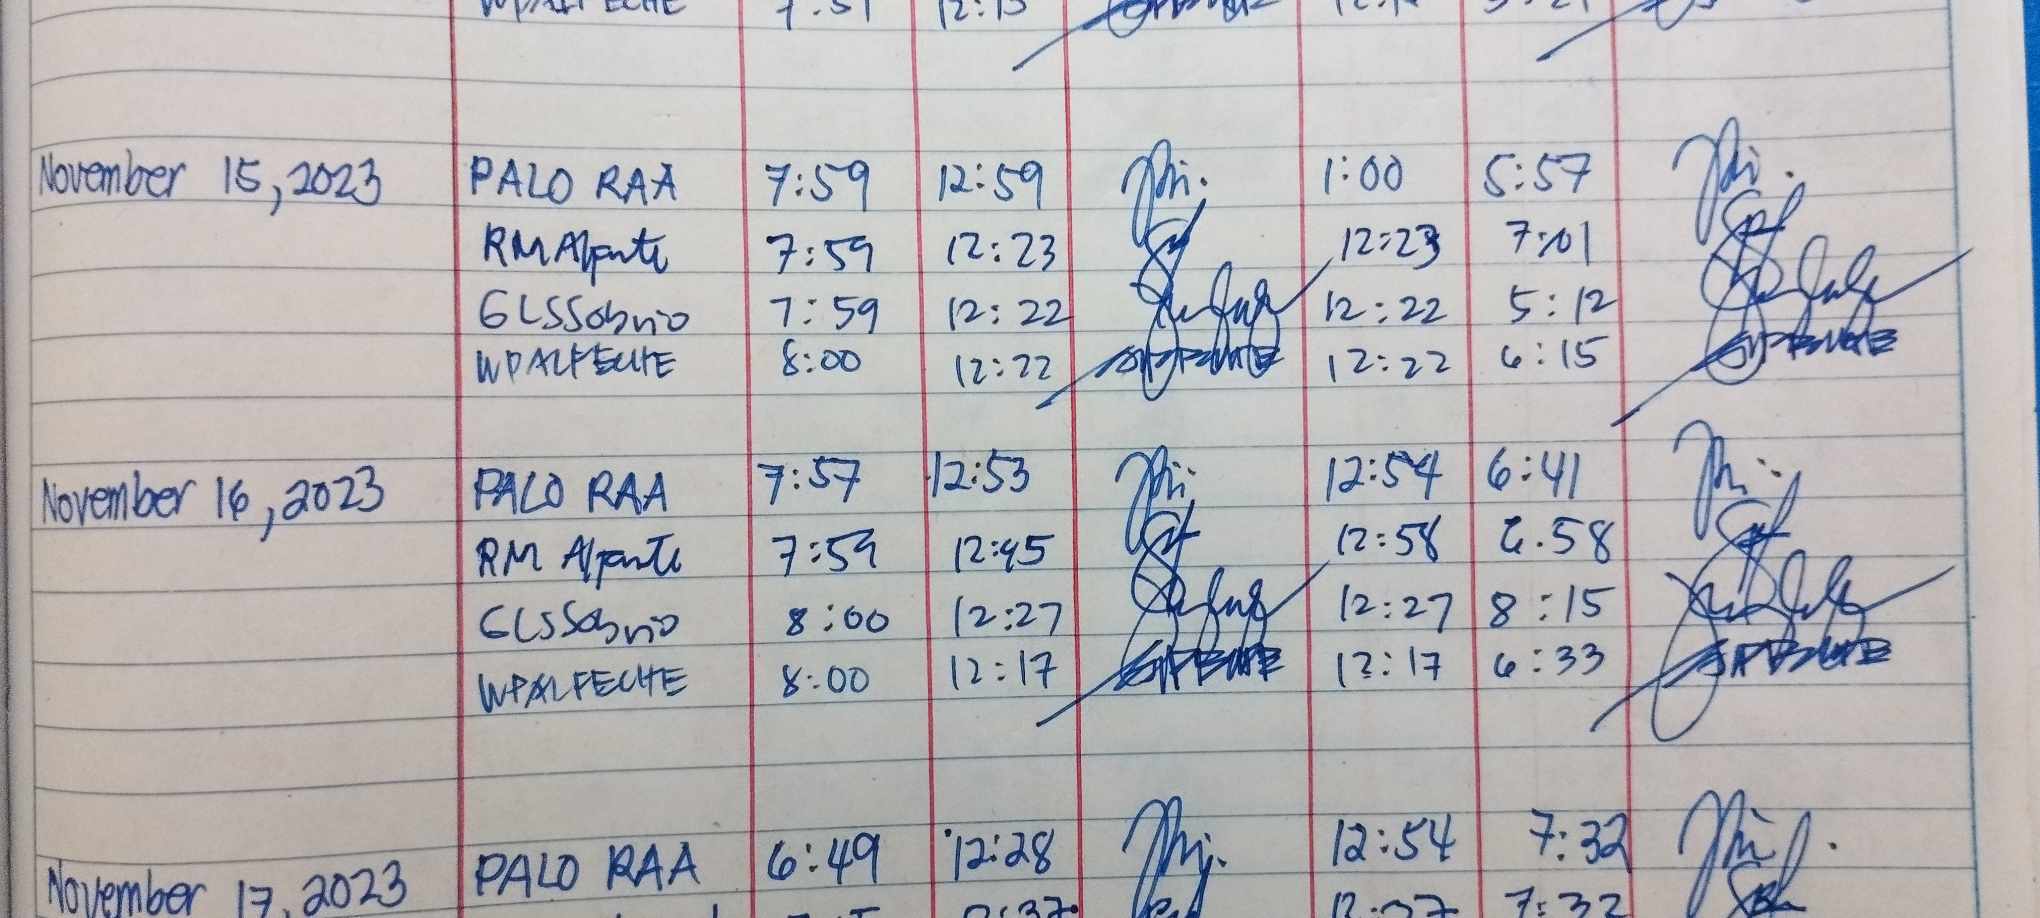 WPALFECHE 7:51 12:13
November 15, 2023 PALO RAA 7:59 12:59 1:00 5:57
RM Alpante 7:59 12:23 12:23 7:01
GLSSobrio 7:59 12:22 12:22 5:12
WPALFECHE 8:00 12:22 12:22 6:15
November 16, 2023 PALO RAA 7:57 12:53 12:54 6:41
RM Alpante 7:59 12:45 12:58 6.58
GLSSobrio 8:00 12:27 12:27 8:15
WPALFECHE 8:00 12:17 12:17 6:33
November 17, 2023 PALO RAA 6:49 12:28 12:54 7:32
12:37 7:32